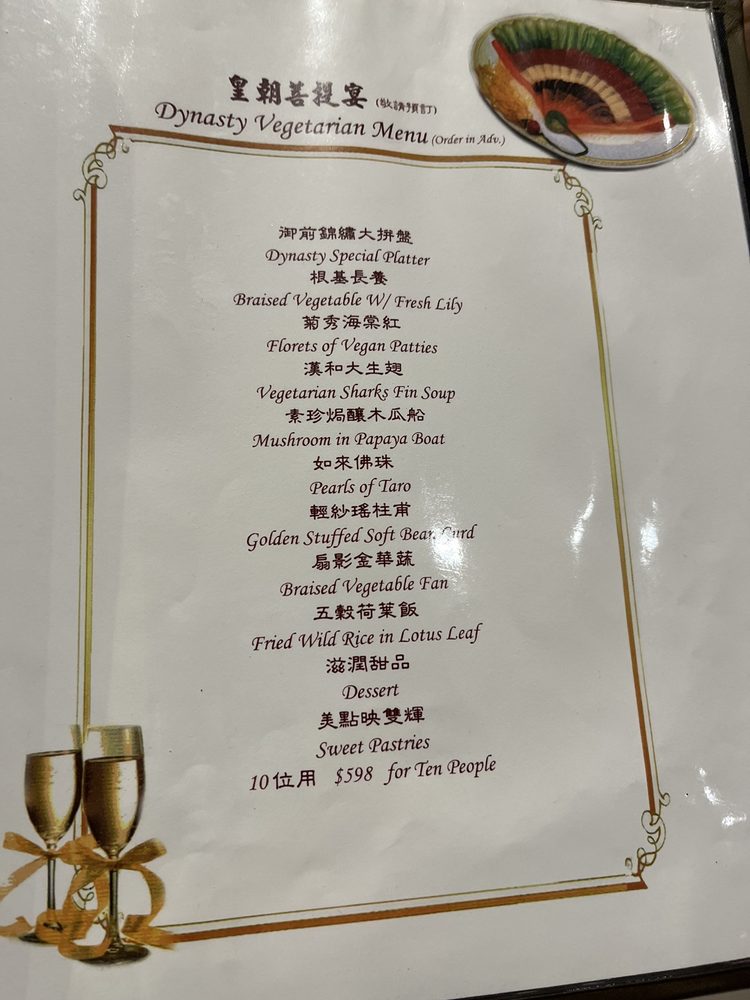 皇朝菩提宴 (敬請預訂)
Dynasty Vegetarian Menu (Order in Adv.)
御前錦繡大拼盤
Dynasty Special Platter
根基長養
Braised Vegetable W/ Fresh Lily
菊秀海棠紅
Florets of Vegan Patties
漢和大生翅
Vegetarian Sharks Fin Soup
素珍焗釀木瓜船
Mushroom in Papaya Boat
如來佛珠
Pearls of Taro
輕紗瑤柱甫
Golden Stuffed Soft Bean Curd
扇影金華蔬
Braised Vegetable Fan
五穀荷葉飯
Fried Wild Rice in Lotus Leaf
滋潤甜品
Dessert
美點映雙輝
Sweet Pastries
10位用 $598 for Ten People